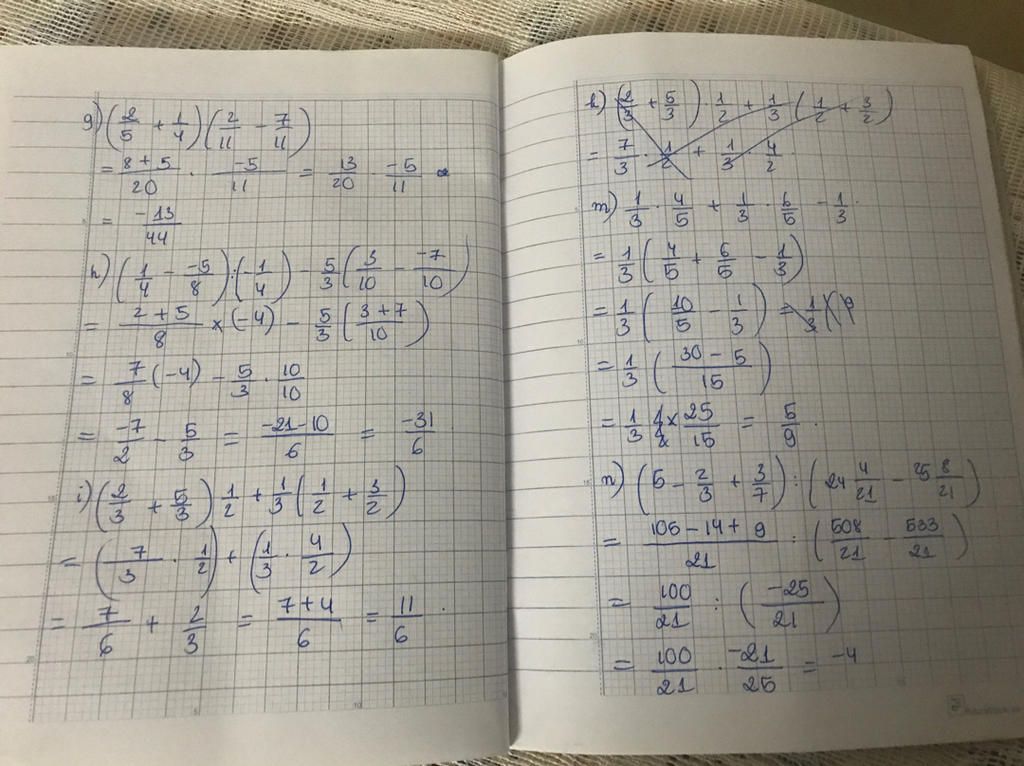 g) (2/5 + 1/4)(2/11 − 7/11)
= (8+5)/20 · −5/11 = 13/20 · −5/11
= −13/44
h) (1/4 − −5/8):(−1/4) − 5/3(3/10 − −7/10)
= (2+5)/8 × (−4) − 5/3((3+7)/10)
= 7/8(−4) − 5/3 · 10/10
= −7/2 − 5/3 = (−21−10)/6 = −31/6
i) (2/3 + 5/3) 1/2 + 1/3(1/2 + 3/2)
= (7/3 · 1/2) + (1/3 · 4/2)
= 7/6 + 2/3 = (7+4)/6 = 11/6
k) (2/3 + 5/3) · 1/2 + 1/3(1/2 + 3/2)
= 7/3 · 1/2 + 1/3 · 4/2
m) 1/3 · 4/5 + 1/3 · 6/5 − 1/3
= 1/3(4/5 + 6/5 − 1/3)
= 1/3(10/5 − 1/3) = 1/3
= 1/3((30−5)/15)
= 1/3 × 25/15 = 5/9
n) (5 − 2/3 + 3/7):(24 4/21 − 25 8/21)
= (105−14+9)/21 : (508/21 − 533/21)
= 100/21 : (−25/21)
= 100/21 · −21/25 = −4